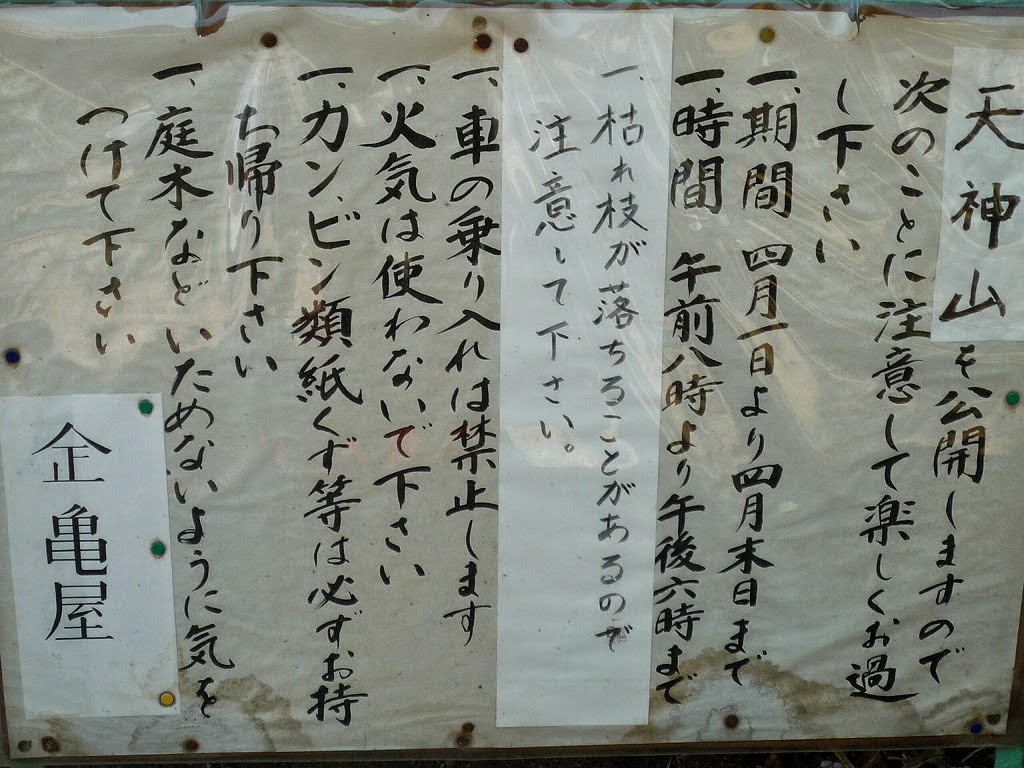 天神山を公開しますので
次のことに注意して楽しくお過
し下さい
一、期間 四月一日より四月末日まで
一、時間 午前八時より午後六時まで
一、枯れ枝が落ちることがあるので
注意して下さい。
一、車の乗り入れは禁止します
一、火気は使わないで下さい
一、カン、ビン類紙くず等は必ずお持
ち帰り下さい
一、庭木などいためないように気を
つけて下さい
亀屋